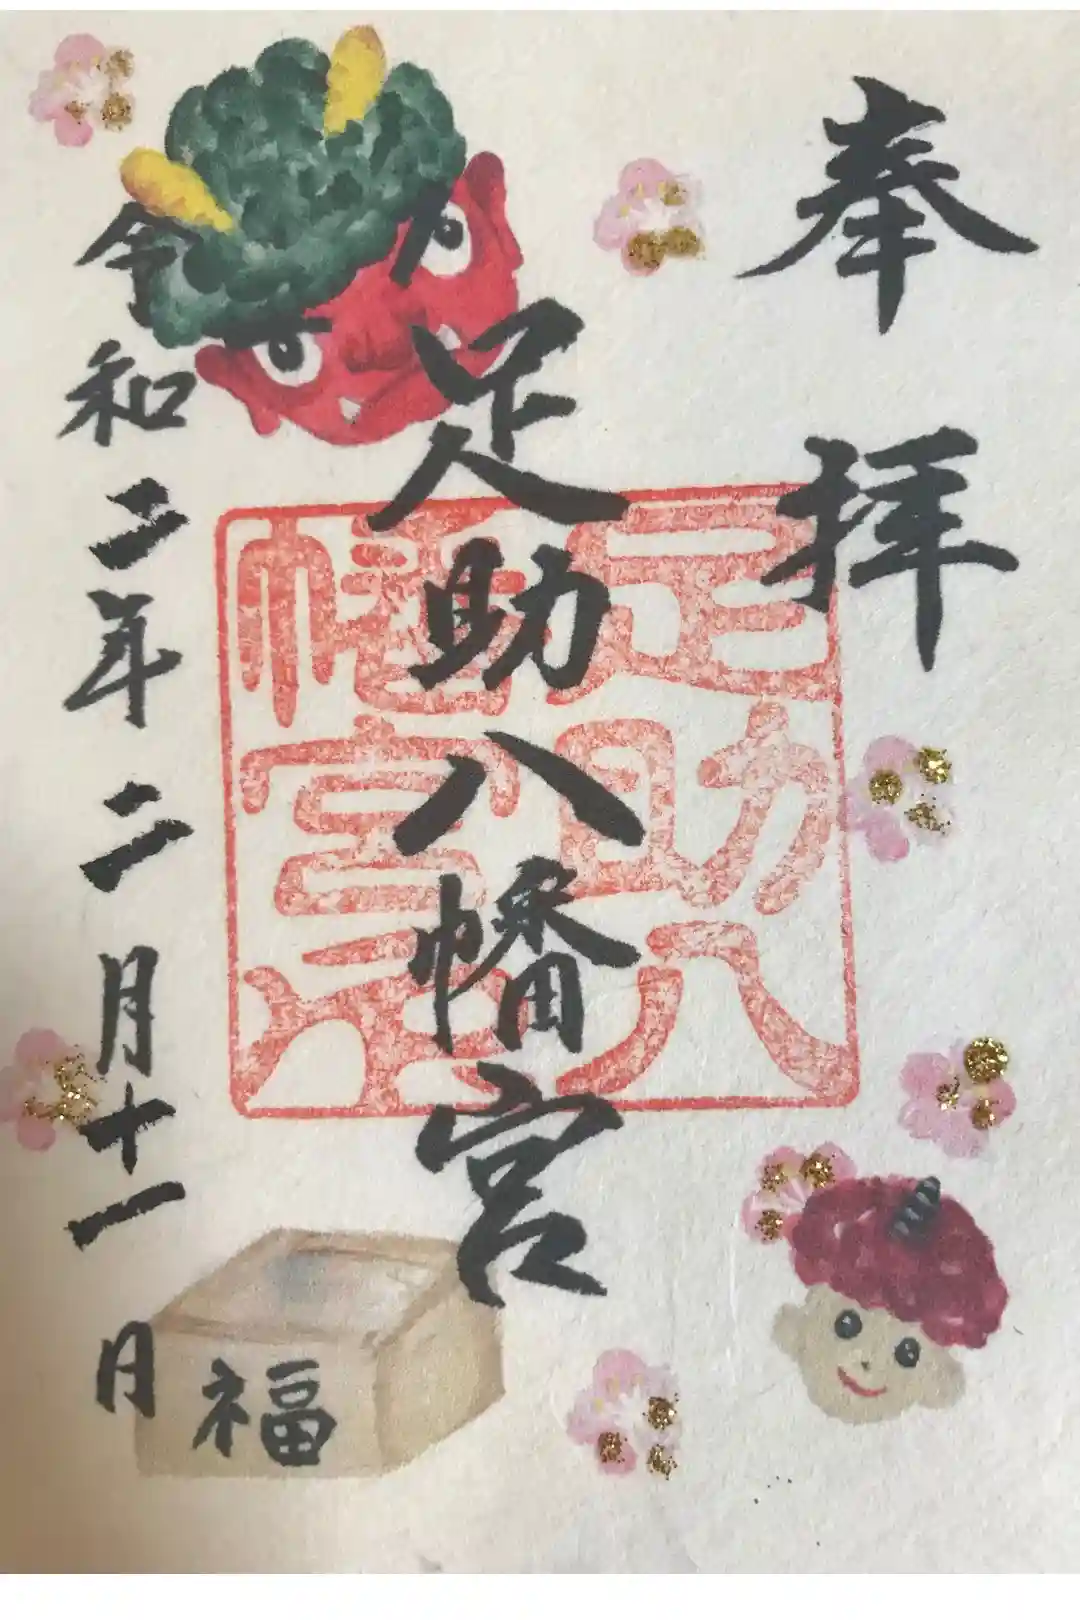 奉拝
足助八幡宮
足助八
幡宮印
令和二年二月十一日
福